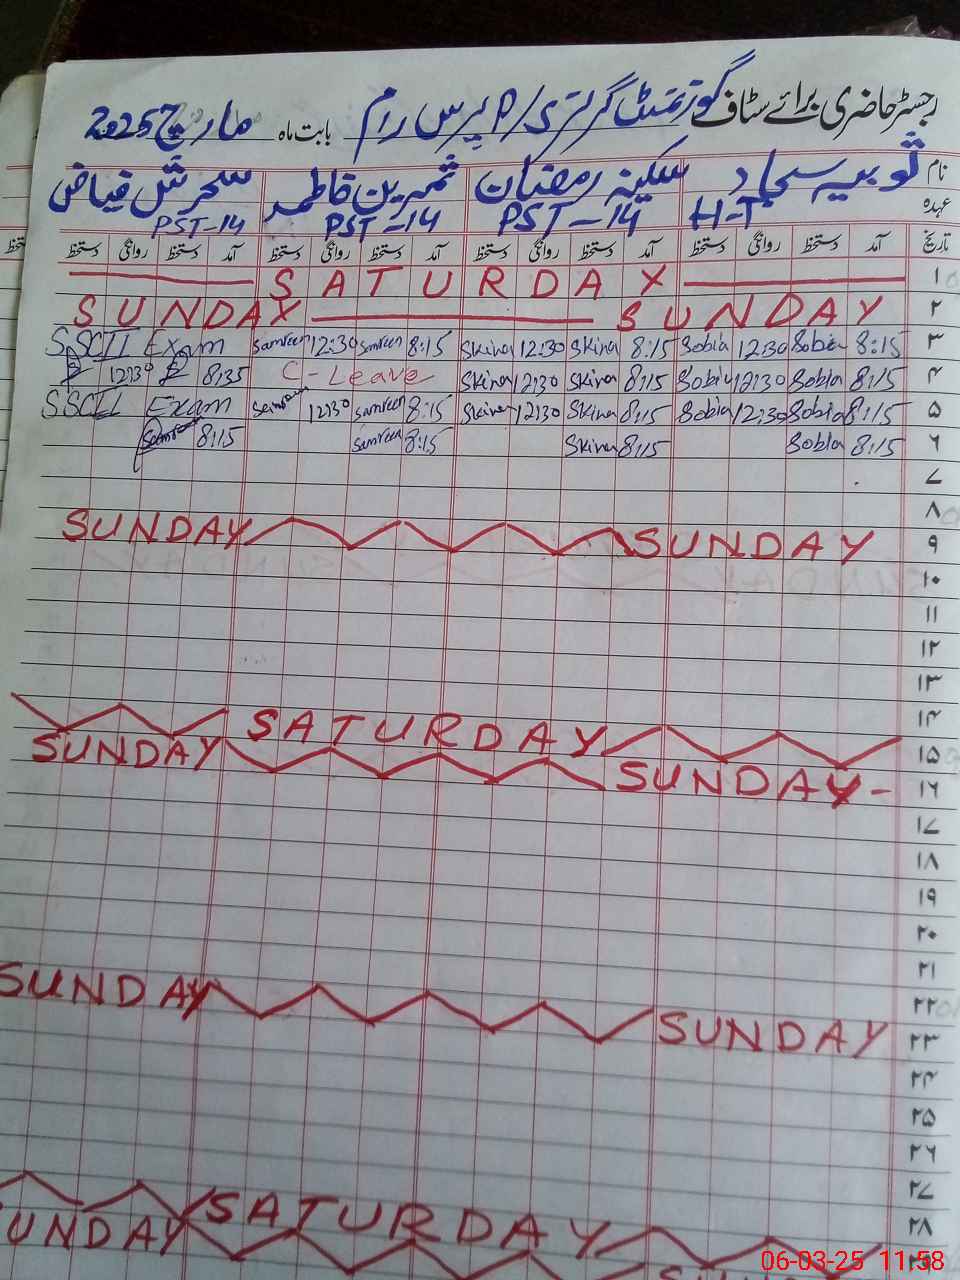 رجسٹر حاضری برائے سٹاف گورنمنٹ گرلز P/S پیرس رام بابت ماہ مارچ 2025
نام ثوبیہ سجاد سکینہ رمضان ثمرین فاطمہ سحرش فیاض
عہدہ H-T PST-14 PST-14 PST-14
تاریخ آمد دستخط روانگی دستخط آمد دستخط روانگی دستخط آمد دستخط روانگی دستخط آمد دستخط روانگی دستخط
SATURDAY ۱
SUNDAY SUNDAY ۲
SSC II Exam Samreen 12:30 Samreen 8:15 Skina 12:30 Skina 8:15 Sobia 12:30 Sobia 8:15 ۳
12:30 8:35 C-Leave Skina 12:30 Skina 8:15 Sobia 12:30 Sobia 8:15 ۴
SSC II Exam Samreen 12:30 Samreen 8:15 Skina 12:30 Skina 8:15 Sobia 12:30 Sobia 8:15 ۵
8:15 Samreen 8:15 Skina 8:15 Sobia 8:15 ۶
۷
۸
SUNDAY SUNDAY ۹
۱۰
۱۱
۱۲
۱۳
۱۴
SATURDAY ۱۵
SUNDAY SUNDAY- ۱۶
۱۷
۱۸
۱۹
۲۰
۲۱
۲۲
SUNDAY SUNDAY ۲۳
۲۴
۲۵
۲۶
۲۷
۲۸
SATURDAY ۲۹
SUNDAY
06-03-25 11:58